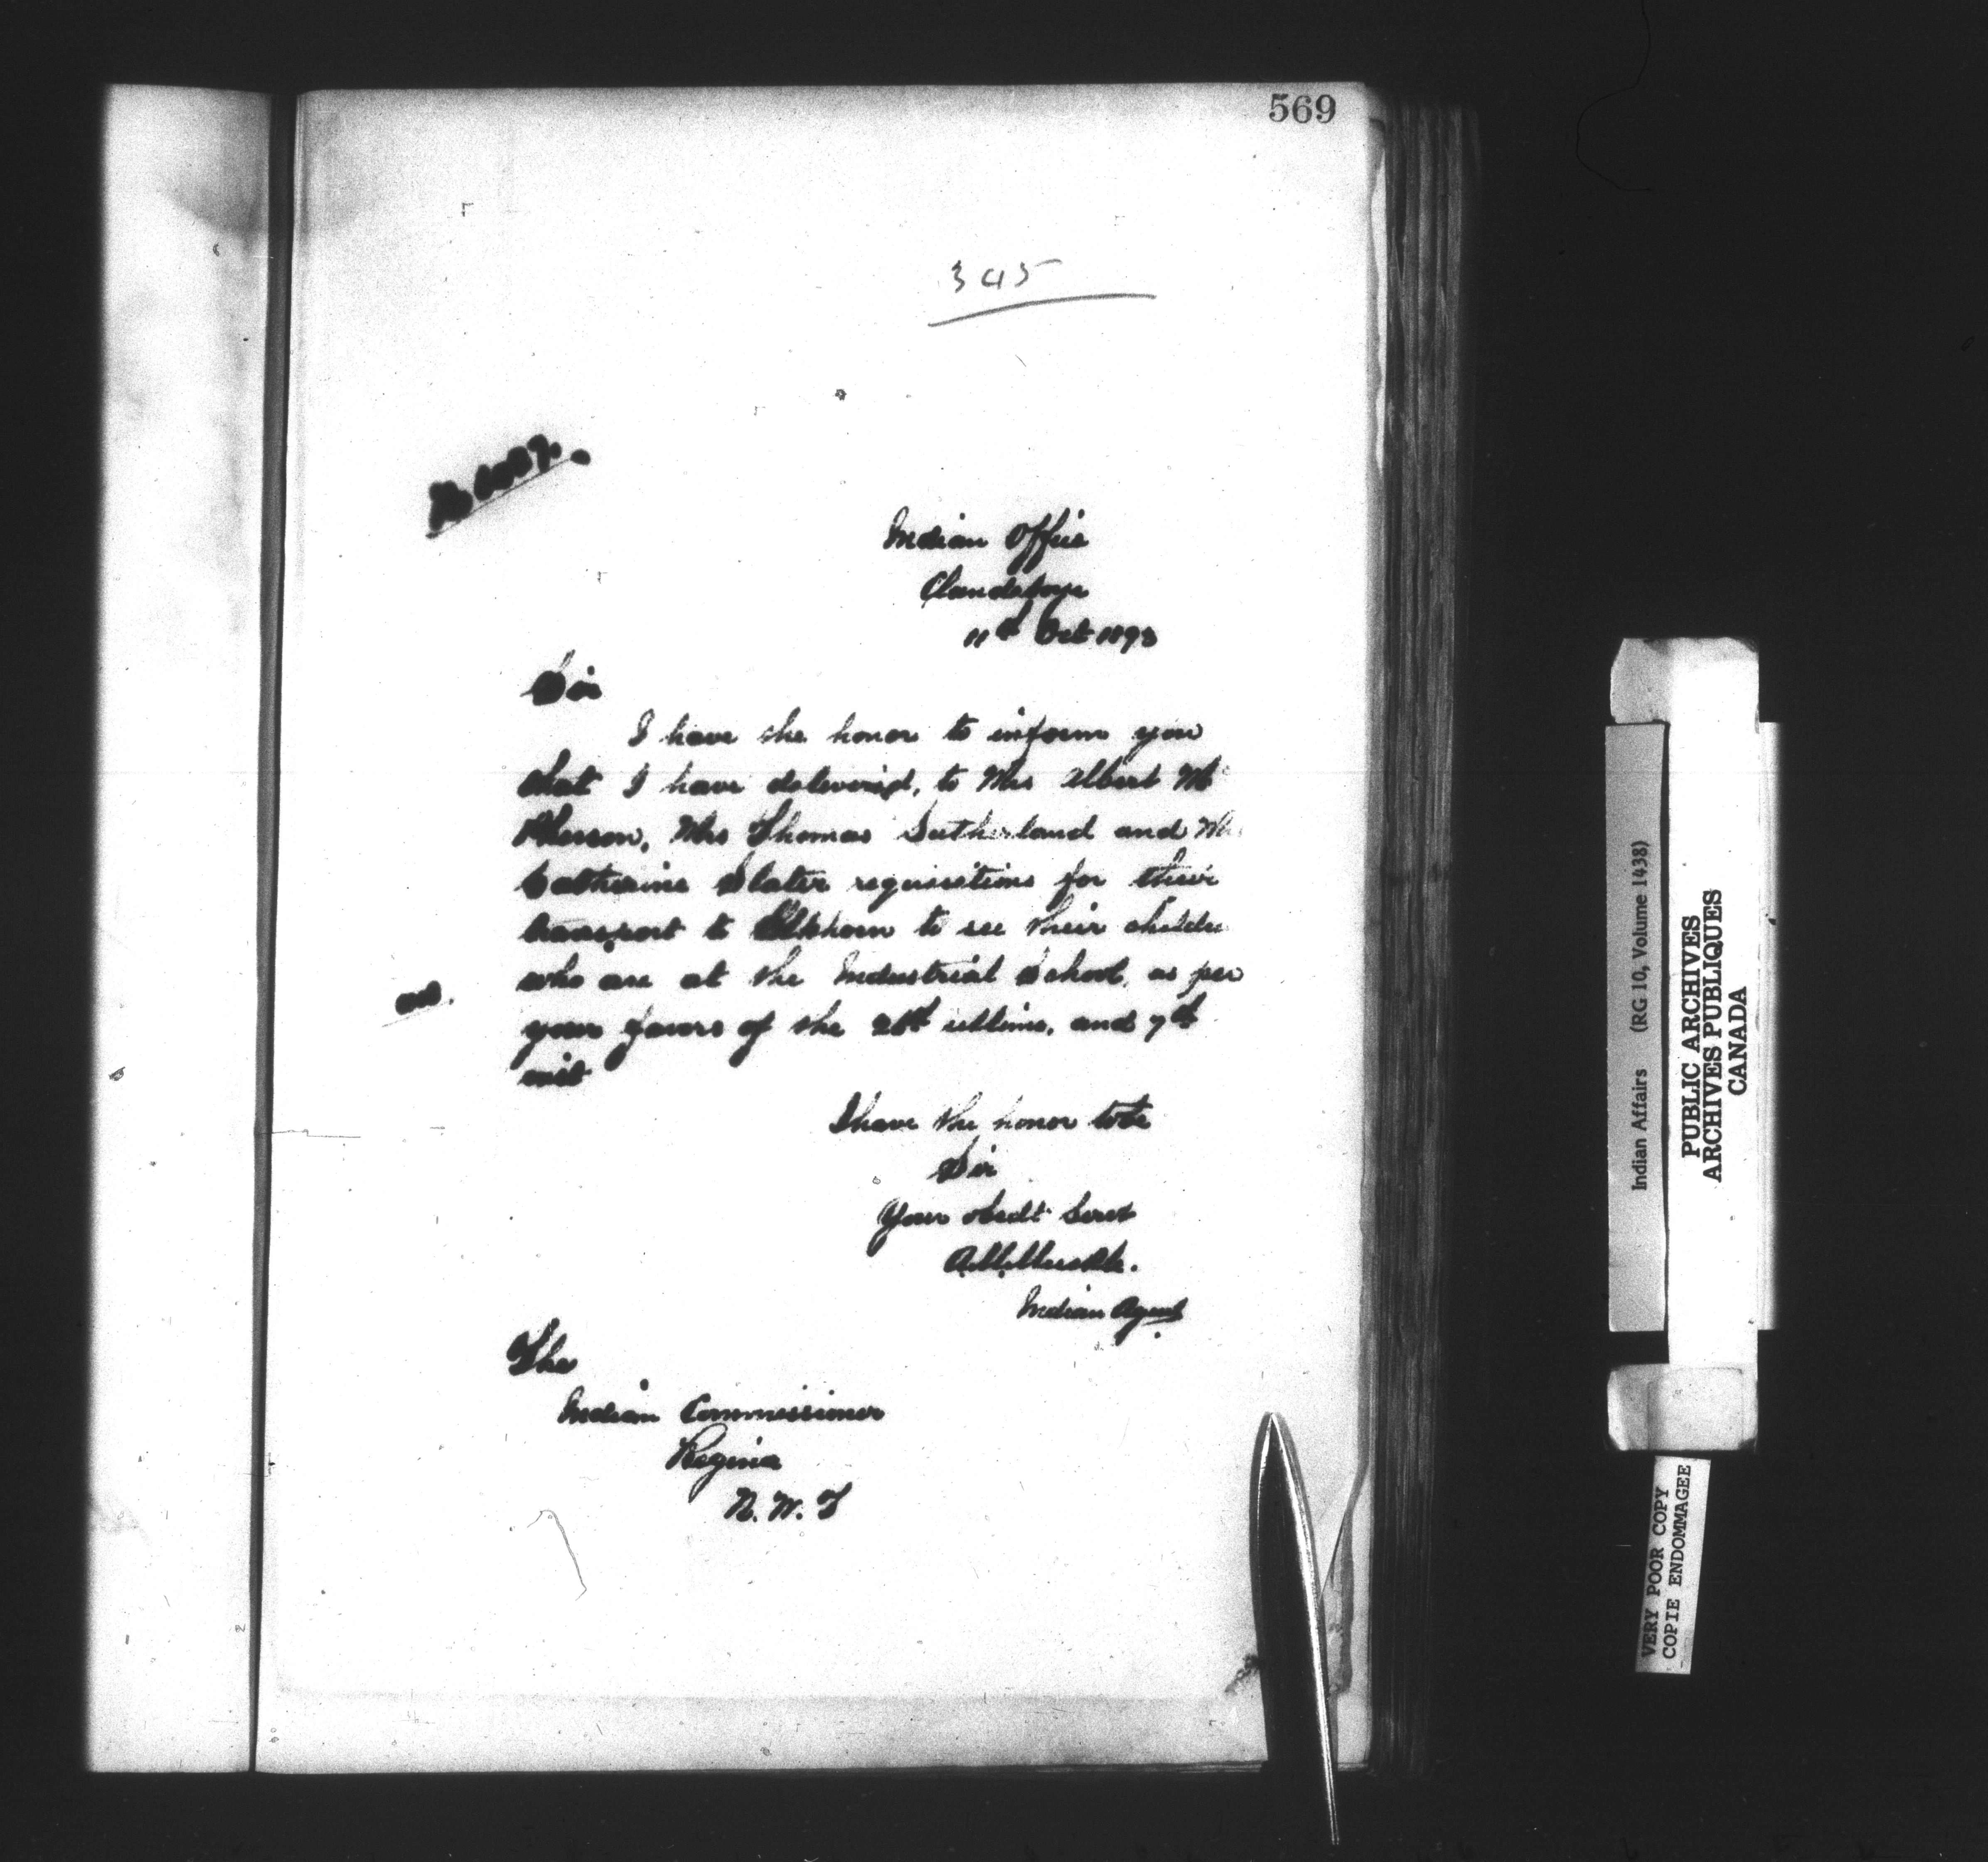 569
345
No 1087.
Indian Office
Clandeboye
11th Oct 1893
Sir
I have the honor to inform you
that I have delivered, to Mrs Albert Mc
Pherson, Mrs Thomas Sutherland and Mrs
Catherine Slater requisitions for their
transport to Elkhorn to see their childre
who are at the Industrial School, as per
your favors of the ultimo, and 7th
inst
I have the honor to be
Sir
Your obedt Servt
Indian Agent
The
Indian Commissioner
Regina
N.W.T
Indian Affairs (RG 10, Volume 1438)
PUBLIC ARCHIVES
ARCHIVES PUBLIQUES
CANADA
VERY POOR COPY
COPIE ENDOMMAGEE